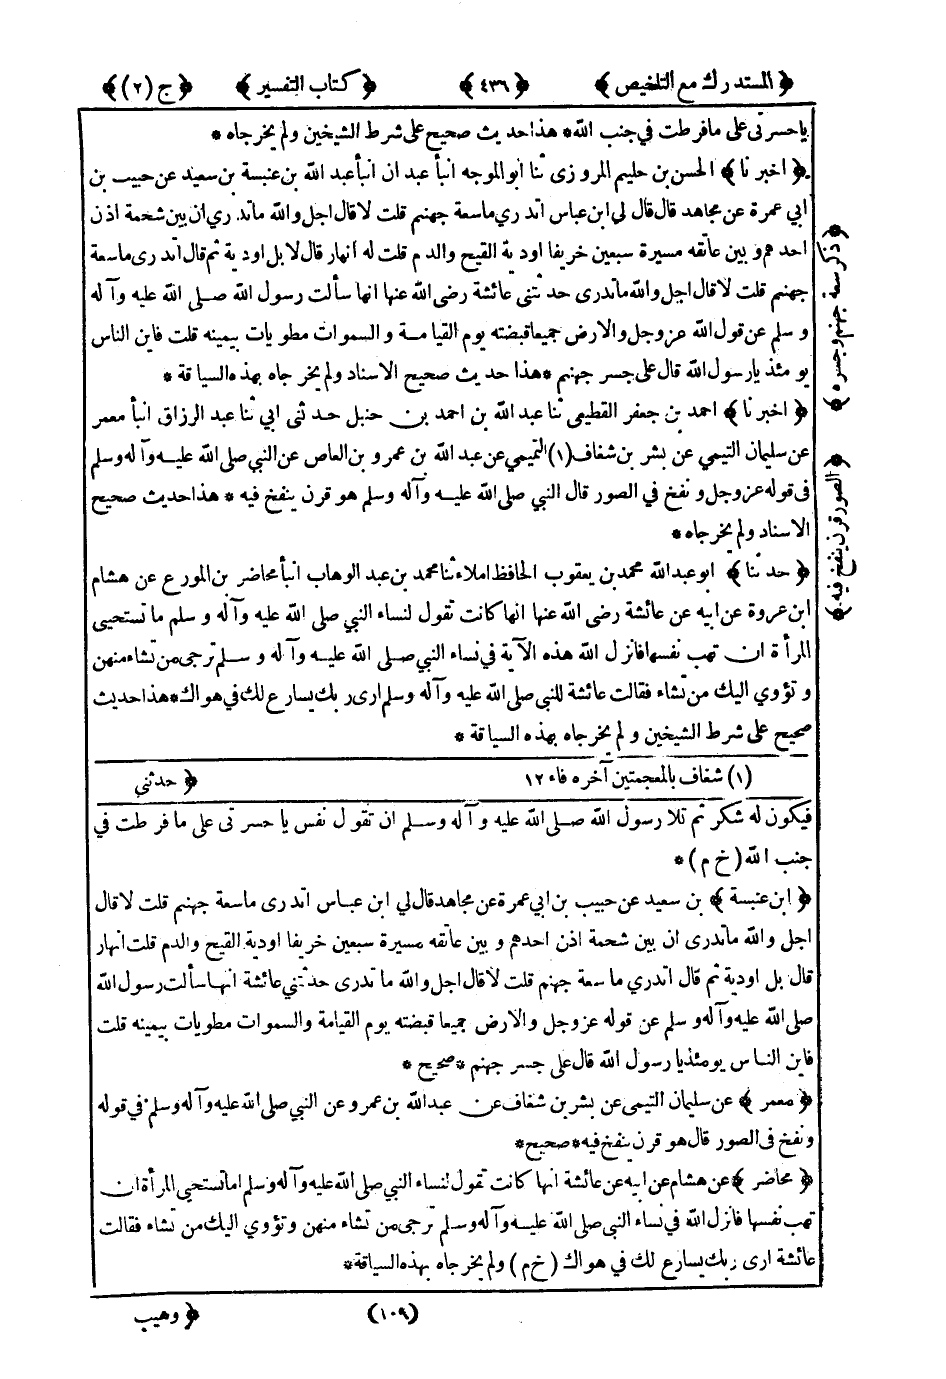 ﴿ المستدرك مع التلخيص ﴾ ﴿ ٤٣٦ ﴾ ﴿ كتاب التفسير ﴾ ﴿ ج (٢) ﴾
ياحسرتى على مافرطت في جنب الله * هذا حديث صحيح على شرط الشيخين ولم يخرجاه *
﴿ اخبرنا ﴾ الحسن بن حليم المروزى ثنا ابو الموجه انبأ عبدان انبأ عبد الله بن عنبسة بن سعيد عن حبيب بن
ابي عمرة عن مجاهد قال قال لي ابن عباس اتدري ماسعة جهنم قلت لا قال اجل والله ماتدري ان بين شحمة اذن
احدهم وبين عاتقه مسيرة سبعين خريفا اودية القيح والدم قلت له أنهار قال لا بل اودية ثم قال اتدرى ماسعة
جهنم قلت لا قال اجل والله ماتدرى حدثتنى عائشة رضى الله عنها انها سألت رسول الله صلى الله عليه وآله
وسلم عن قول الله عزوجل والارض جميعا قبضته يوم القيامة والسموات مطويات بيمينه قلت فاين الناس
يومئذ يارسول الله قال على جسر جهنم * هذا حديث صحيح الاسناد ولم يخرجاه بهذه السياقة *
﴿ اخبرنا ﴾ احمد بن جعفر القطيعى ثنا عبد الله بن احمد بن حنبل حدثنى ابي ثنا عبد الرزاق انبأ معمر
عن سليمان التيمي عن بشر بن شغاف (١) التميمي عن عبد الله بن عمرو بن العاص عن النبي صلى الله عليه وآله وسلم
فى قوله عزوجل ونفخ في الصور قال النبي صلى الله عليه وآله وسلم هو قرن ينفخ فيه * هذا حديث صحيح
الاسناد ولم يخرجاه *
﴿ حدثنا ﴾ ابو عبد الله محمد بن يعقوب الحافظ املاء ثنا محمد بن عبد الوهاب انبأ محاضر بن المورع عن هشام
ابن عروة عن ابيه عن عائشة رضى الله عنها انها كانت تقول لنساء النبي صلى الله عليه وآله وسلم ما تستحيى
المرأة ان تهب نفسها فانزل الله هذه الآية في نساء النبي صلى الله عليه وآله وسلم ترجى من تشاء منهن
وتؤوي اليك من تشاء فقالت عائشة للنبي صلى الله عليه وآله وسلم ارى ربك يسارع لك في هواك * هذا حديث
صحيح على شرط الشيخين ولم يخرجاه بهذه السياقة *
﴿ ذكر سعة جهنم وجسره ﴾
﴿ الصور قرن ينفخ فيه ﴾
(١) شغاف بالمعجمتين آخره فاء ١٢ ﴿ حدثني
فيكون له شكر ثم تلا رسول الله صلى الله عليه وآله وسلم ان تقول نفس ياحسرتى على مافرطت في
جنب الله (خ م) *
﴿ ابن عنبسة ﴾ بن سعيد عن حبيب بن ابي عمرة عن مجاهد قال لي ابن عباس اتدرى ماسعة جهنم قلت لا قال
اجل والله ماتدرى ان بين شحمة اذن احدهم وبين عاتقه مسيرة سبعين خريفا اودية القيح والدم قلت انهار
قال بل اودية ثم قال اتدري ماسعة جهنم قلت لا قال اجل والله ماتدرى حدثتني عائشة انها سألت رسول الله
صلى الله عليه وآله وسلم عن قوله عزوجل والارض جميعا قبضته يوم القيامة والسموات مطويات بيمينه قلت
فاين الناس يومئذ يا رسول الله قال على جسر جهنم * صحيح *
﴿ معمر ﴾ عن سليمان التيمى عن بشر بن شغاف عن عبد الله بن عمرو عن النبي صلى الله عليه وآله وسلم في قوله
ونفخ فى الصور قال هو قرن ينفخ فيه * صحيح *
﴿ محاضر ﴾ عن هشام عن ابيه عن عائشة انها كانت تقول لنساء النبي صلى الله عليه وآله وسلم اما تستحيى المرأة ان
تهب نفسها فانزل الله في نساء النبي صلى الله عليه وآله وسلم ترجى من تشاء منهن وتؤوي اليك من تشاء فقالت
عائشة ارى ربك يسارع لك في هواك (خ م) ولم يخرجاه بهذه السياقة *
(١٠٩) ﴿ وهيب